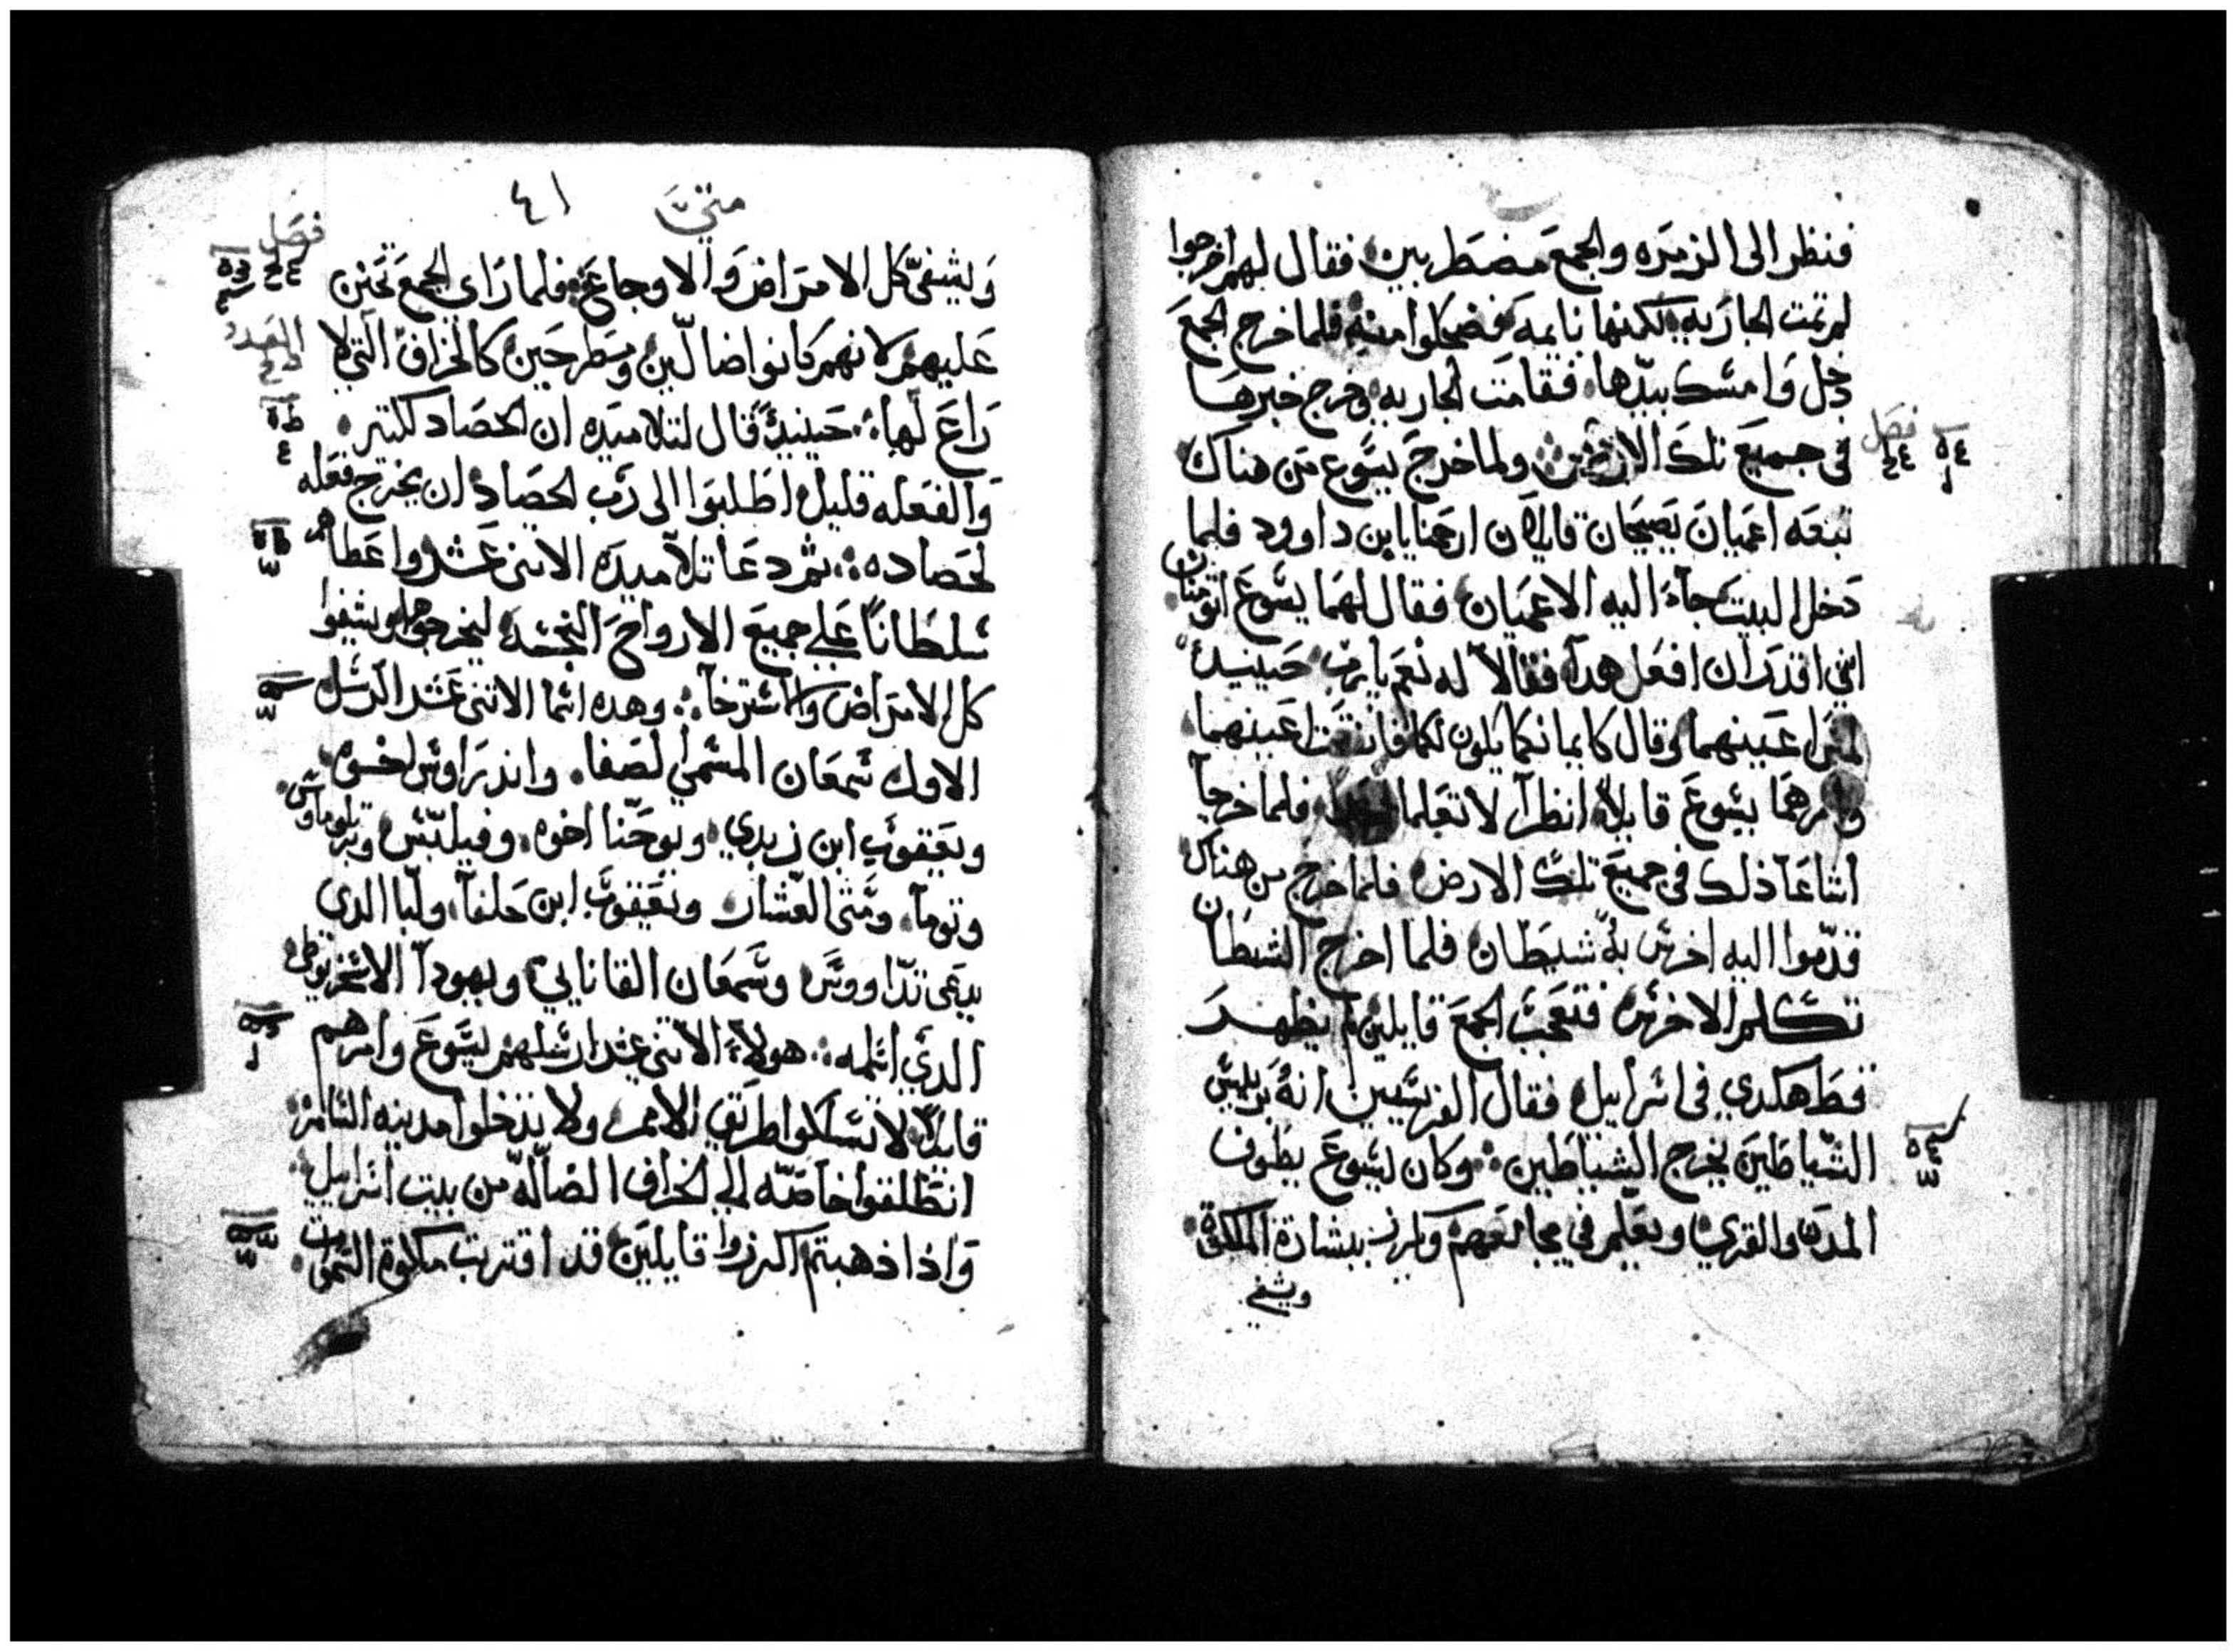 فنظر الى الزمره والجمع مضطربين فقال لهم اخرجوا
لم تمت الجاريه لكنها نايمه فضحكوا منه فلما خرج الجمع
دخل وامسك بيدها فقامت الجاريه وخرج خبرها
فى جميع تلك الارض ولما خرج يسوع من هناك
تبعه اعميان يصيحان قايلان ارحمنا يابن داوود فلما
دخل البيت جآء اليه الاعميان فقال لهما يسوع اتومنان
انني اقدر ان افعل هدا فقالا له نعم يا رب حينيد
لمس اعينهما وقال كايمانكما يكون لكما فانفتحت اعينهما
وامرهما يسوع قايلا انظرا لا تعلما احدا فلما خرجا
اشاعا ذلك فى جميع تلك الارض فلما خرج من هناك
قدموا اليه اخرس به شيطان فلما اخرج الشيطان
تكلم الاخرس فتعجب الجمع قايلين لم يظهر
قط هكدي فى اسراييل فقال الفريسيين انه برييس
الشياطين يخرج الشياطين وكان يسوع يطوف
المدن والقري ويعلم في مجامعهم ويكرز ببشارة الملكوة
ويشفي
متى
٤١
ويشفي كل الامراض والاوجاع فلما راى الجمع تحنن
عليهم لانهم كانوا ضالين ومطرحين كالخراف التي لا
راع لها حينيد قال لتلاميده ان الحصاد كتير
والفعله قليل اطلبوا الى رب الحصاد ان يخرج فعله
لحصاده ثم دعا تلاميده الاتنى عشر واعطاهم
سلطانا على جميع الارواح النجسه ليخرجوها ويشفوا
كل الامراض والاسترخآ وهده اسما الاتنى عشر الرسل
الاول سمعان المسمي الصفا واندراوس اخوه
ويعقوب ابن زبدي ويوحنا اخوه وفيلبس وبرتلوماوس
وتوما ومتى العشار ويعقوب ابن حلفا ولبا الدي
يدعى تداووس وسمعان القانايي ويهودا الاسخريوطي
الدي اسلمه هولاء الاتني عشر ارسلهم يسوع وامرهم
قايلا لا تسلكوا طريق الامم ولا تدخلوا مدينه السامره
انطلقوا خاصه الي الخراف الضاله من بيت اسراييل
واذا ذهبتم اكرزوا قايلين قد اقتربت ملكوة السموات
فصل
فصل